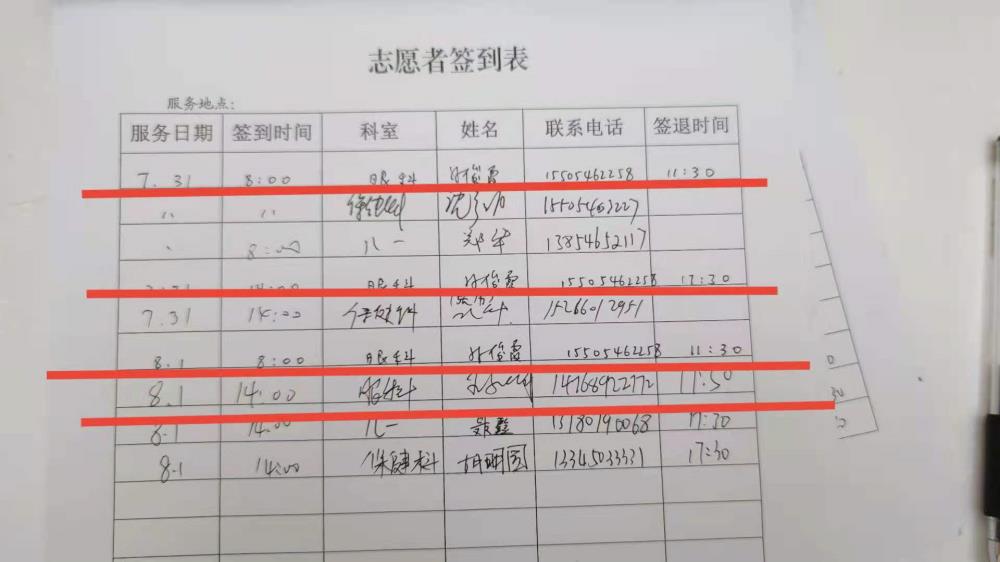 志愿者签到表
服务地点:
服务日期 签到时间 科室 姓名 联系电话 签退时间
7.31 8:00 眼科 孙俊霞 15505462258 11:30
〃 〃 15505463227
8:00 儿一 郑华 13854652117
14:00 眼科 孙俊霞 15505462258 17:30
7.31 14:00 15266012951
8.1 8:00 眼科 孙俊霞 15505462258 11:30
8.1 14:00 眼科 14768922772 17:30
8.1 14:00 儿一 聂鑫 13780190068 17:30
8.1 14:00 保健科 胡明国 13345033331 17:30